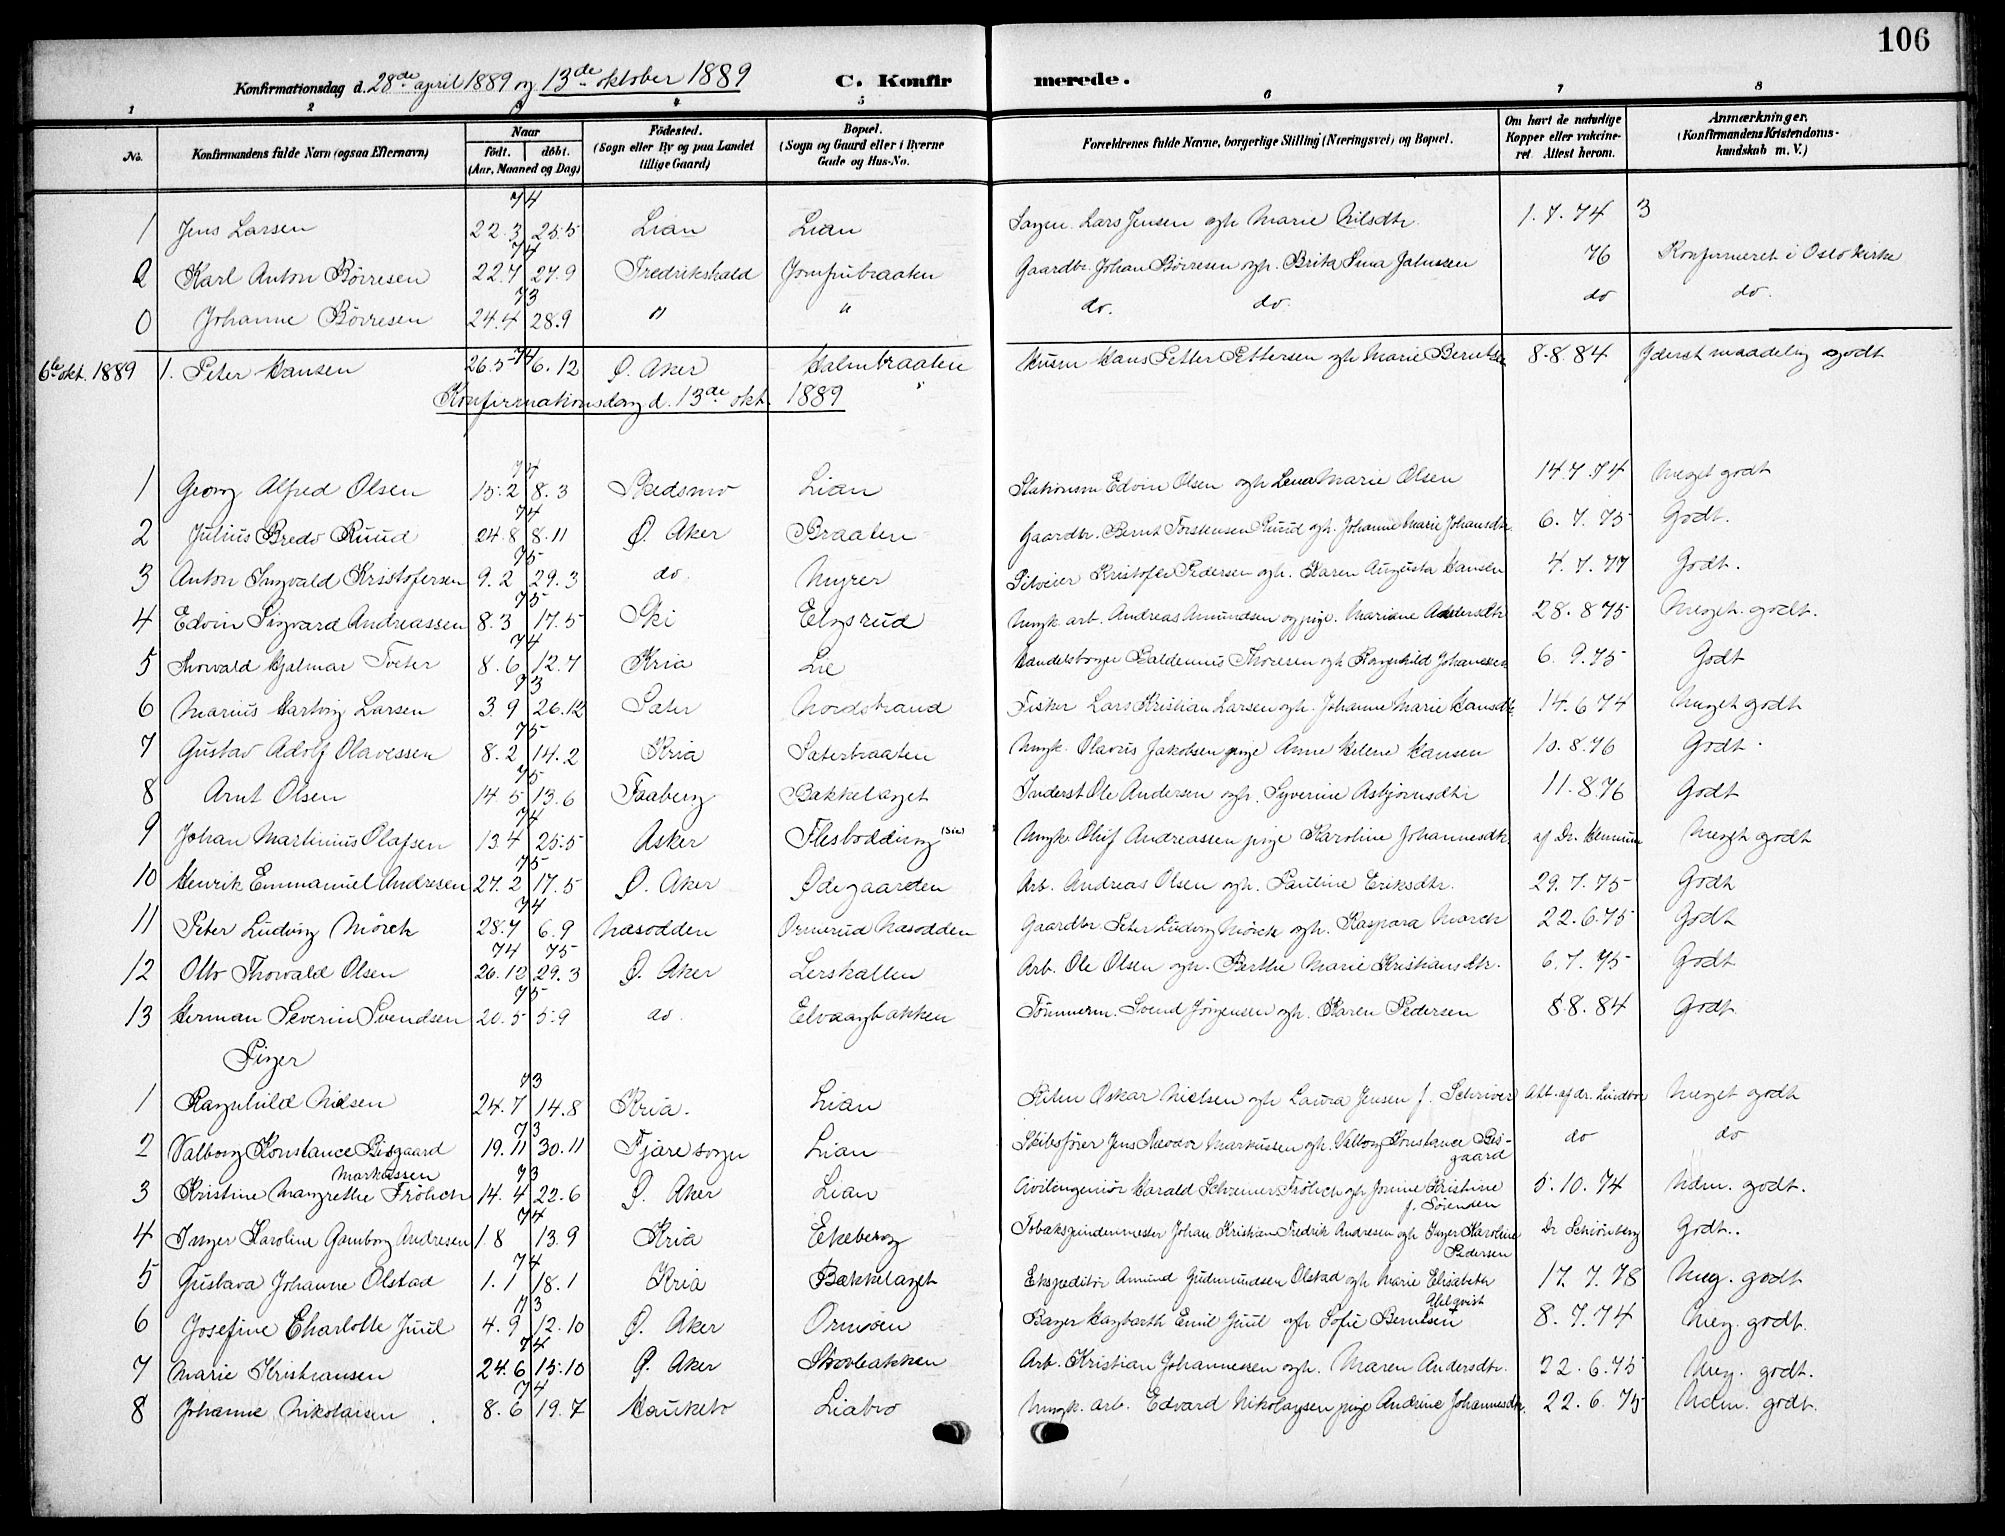 106
Konfirmationsdag d. 28de april 1889 og 13de oktober 1889 C. Konfirmerede.
1 2 3 4 5 6 7 8
No. Konfirmandens fulde Navn (ogsaa Efternavn) Naar født. døbt. (Aar, Maaned og Dag) Fødested. (Sogn eller By og paa Landet tillige Gaard) Bopæl. (Sogn og Gaard eller i Byerne Gade og Hus-No. Forældrenes fulde Navne, borgerlige Stilling (Næringsvei) og Bopæl. Om havt de naturlige Kopper eller vakcineret Attest herom. Anmærkninger. (Konfirmandens Kristendomskundskab m. V.)
74
1 Jens Larsen 22.3 25.5 Lian Lian Lars Jensen ogh Marie Nilsdtr. 1.7.74 3
74
2 Karl Anton Børresen 22.7 27.9 Fredrikshald Jomfrubraaten Gaardbr. Johan Børresen ogh. Brita Lina 76 Konfirmeret i Oslo kirke
73
0 Johanne Børresen 24.4 28.9 " " do. do. do do.
6te okt. 1889 1. Peter Hansen 26.5 74 6.12 Ø. Aker Halmbraaten Husm Hans Petter Pettersen ogh Marie Berntsen 8.8.84 Yderst maadelig godt
Konfirmationsdag d. 13de okt. 1889
74
1 Georg Alfred Olsen 15.2 8.3 Skedsmo Lian Stationsm Edvin Olsen ogh Lena Marie Olsen 14.7.74 Meget godt
74
2 Julius Bredo Ruud 24.8 8.11 Ø. Aker Braaten Gaardbr. Bernt Torstensen Ruud ogh. Johanne Marie Johansdtr 6.7.75 Godt.
75
3 Anton Ingvald Kristofersen 9.2 29.3 do. Myrer Kristofer Pedersen ogh. Karen Augusta Hansen 4.7.77 Godt.
75
4 Edvin Sigvard Andreassen 8.3 17.5 Ski Elgsrud Ungk. arb. Andreas Amundsen og pige. Mariane Andersdtr 28.8 75 Meget godt.
74
5 Thorvald Hjalmar Tveter 8.6 12.7 Kria Lie Handelsborger Baldemius Thoresen ogh Ragnhild Johannesen 6.9.75 Godt
73
6 Marius Hartvig Larsen 3.9 26.12 Sæter Nordstrand Fisker Lars Kristian Larsen ogh. Johanne Marie Hansdtr 14.6 74 Meget godt
75
7 Gustav Adolf Olavessen 8.2 14.2 Kria Sæterbraaten Ungk. Olavus Jakobsen pige Anne Helene Hansen 10.8.76 Godt.
75
8 Arnt Olsen 14 5 13.6 Faaberg Bakkelaget Inderst Ole Andersen ogh. Syverine Asbjørnsdtr 11.8.76 Godt
74
9 Johan Martinius Olafsen 13.4 25.5 Asker Flesbodding (Sic) Ungk. Oluf Andreassen pige Karoline Johannesdtr. af Dr. Meget godt
75
10 Henrik Emmanuel Andresen 27.2 17.5 Ø. Aker Ødegaarden Arb. Andreas Olsen ogh. Pauline Eriksdtr. 29.7.75 Godt
74
11 Peter Ludvig Mørch 28.7 6.9 Næsodden Ormerud Næsodden Gaardbr. Peter Ludvig Mørch ogh. Kaspara Mørch 22.6.75 Godt
74 75
12 Otto Thorvald Olsen 26.12 29.3 Ø. Aker Lerskallen Arb. Ole Olsen ogh. Berthe Marie Kristiansdtr. 6.7.75 Godt
75
13 Herman Severin Svendsen 20.5 5.9 do. Elvaagbakken Tømmerm. Svend Jørgensen ogh. Karen Pedersen 8.8.84 Godt
Piger
73
1 Ragnhild Nilsen 24.7 14.8 Kria. Lian Oskar Nielsen ogh Laura Jensen f. Schriver Att. af dr. Meget godt
73
2 Valborg Konstance Bisgaard Markussen 19.11 30.11 Fjære sogn Lian Skibsfører Jens Theodor Markussen ogh. Valborg Konstance Bisgaard do do
73
3 Kristine Margrethe Frölich 14.4 22.6 Ø. Aker Lian Civilingeniør Harald Schreiner Frölich ogh Jonine Kristine f. Sørensen 5.10.74 Udm. godt.
74
4 Inger Karoline Gamborg Andresen 1.8 13.9 Kria Ekeberg Tobakspindermester Johan Kristian Fredrik Andresen ogh Inger Karoline Pedersen Dr Schiønberg Godt..
74
5 Gustava Johanne Olstad 1.1 18.1 Kria Bækkelaget Ekspeditør Amund Gudmundsen Olstad ogh Marie Elisabeth Ahlqvist 17.7.78 Meg. godt
73
6 Josefine Charlotte Juul 4.9 12.10 Ø. Aker Ormøen Bager Hagbarth Emil Juul ogh Sofie Berntsen 8.7.74 Meg. godt.
74
7 Marie Kristiansen 24.6 15.10 Ø. Aker Skovbakken Arb. Kristian Johannessen ogh. Maren Andersdtr. 22.6.75 Meg. godt.
74
8 Johanne Nikolaisen 8.6 19.7 Hauketo Liabro Ungk. arb. Edvard Nikolaysen pige Andrine Johannesdtr. 22.6.75 Udm. godt.